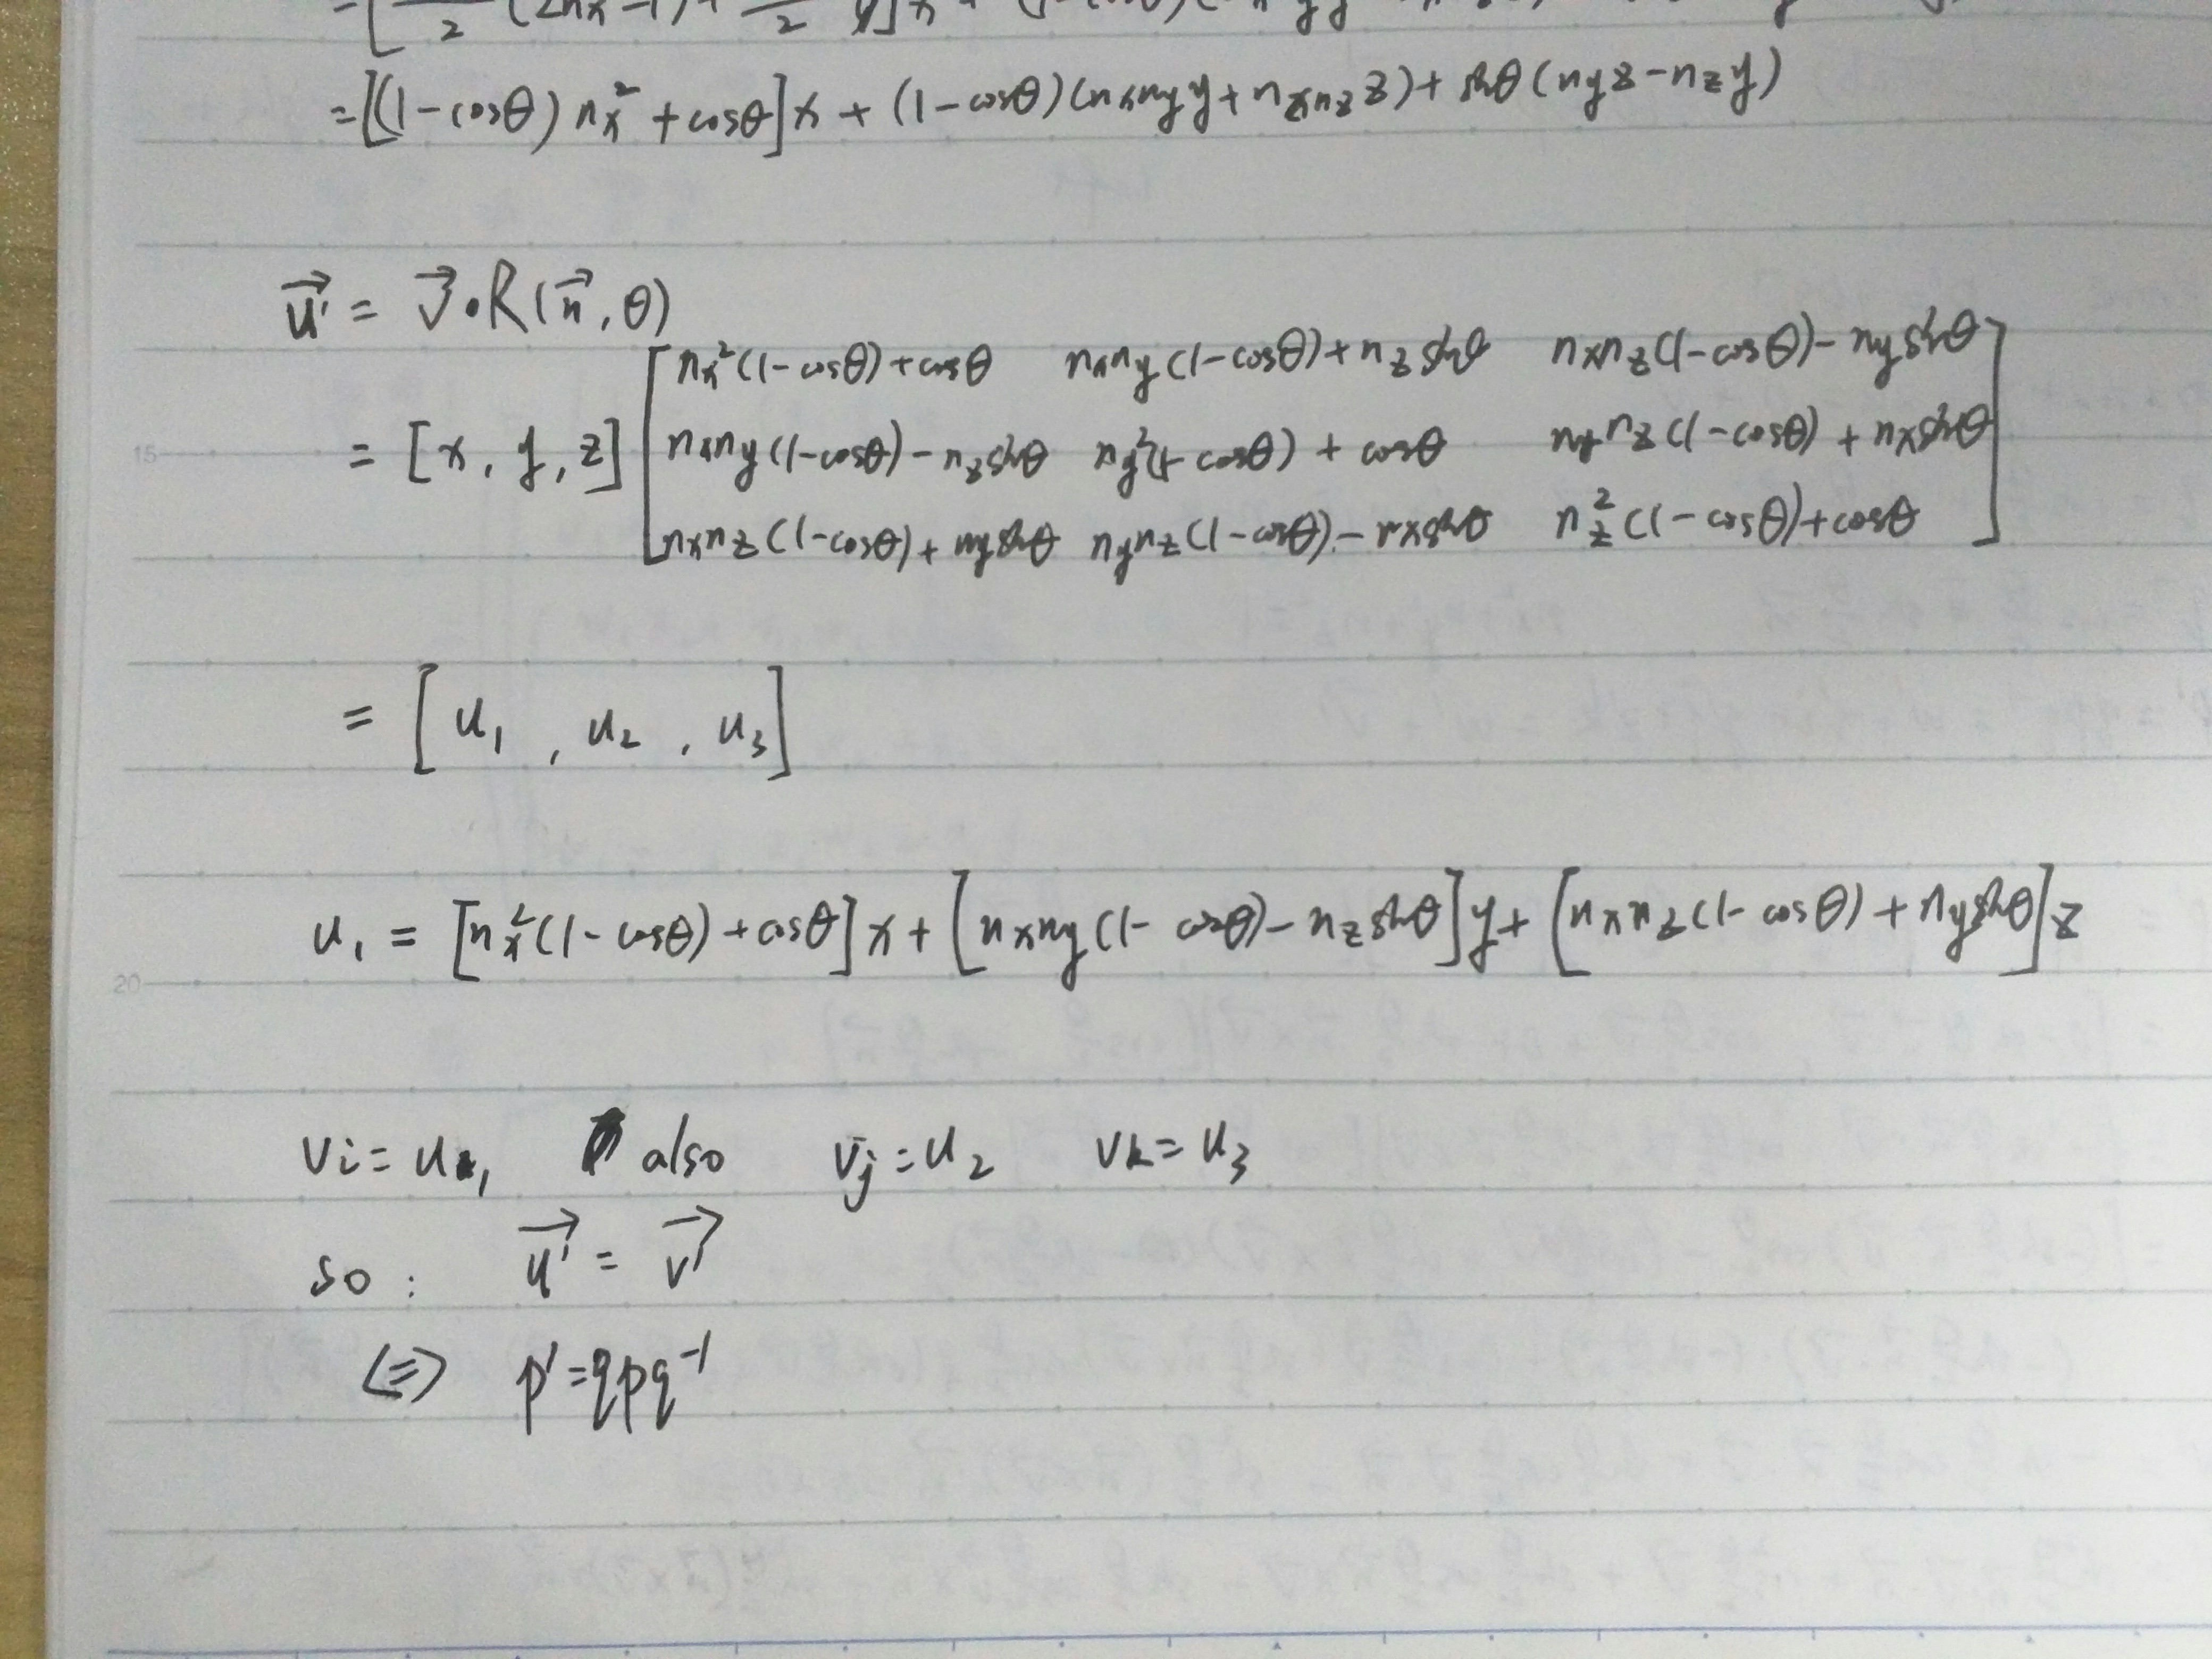 =[(1-cosθ) nx² + cosθ]x + (1-cosθ)(nxnyy + nxnzz) + sinθ(nyz-nzy)
u⃗' = v⃗·R(n⃗, θ)
[nx²(1-cosθ)+cosθ nxny(1-cosθ)+nzsinθ nxnz(1-cosθ)-nysinθ]
15
= [x, y, z] [nxny(1-cosθ)-nzsinθ ny²(1-cosθ)+cosθ nynz(1-cosθ)+nxsinθ]
[nxnz(1-cosθ)+nysinθ nynz(1-cosθ)-nxsinθ nz²(1-cosθ)+cosθ]
= [u₁, u₂, u₃]
u₁ = [nx²(1-cosθ)+cosθ]x + [nxny(1-cosθ)-nzsinθ]y + [nxnz(1-cosθ)+nysinθ]z
20
vi=u₁ also vj=u₂ vk=u₃
so: u⃗' = v⃗'
<=> p'=qpq⁻¹